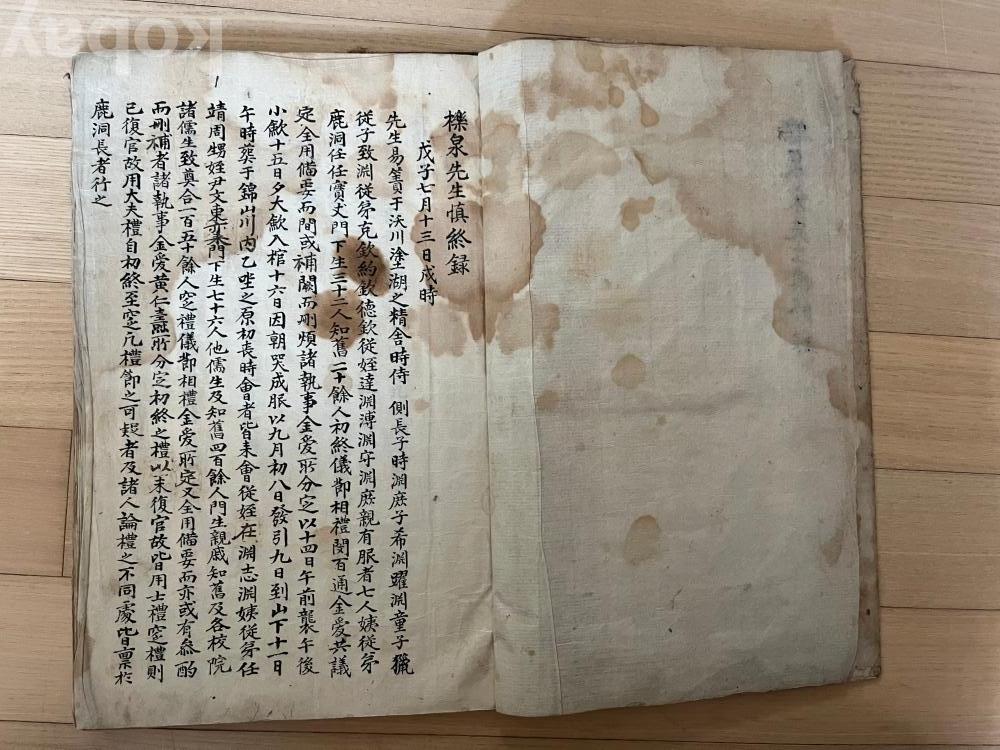 kobay
1
櫟泉先生愼終録
戊子七月十三日戌時
先生易簀于沃川塗湖之精舍時侍 側長子時淵庶子希淵躍淵童子獵
從子致淵從弟克欽約欽德欽從姪達淵溥淵守淵庶親有服者七人姨從弟
鹿洞任任實丈門下生三十二人知舊二十餘人初終儀節相禮閔百通金愛共議
定全用備要而間或補闕而刪煩諸執事金愛所分定以十四日午前襲午後
小斂十五日夕大斂入棺十六日因朝哭成服以九月初八日發引九日到山下十一日
午時葬于錦山川內乙坐之原初喪時會者皆來會從姪在淵志淵姨從弟任
靖周甥姪尹文東亦來門下生七十六人他儒生及知舊四百餘人門生親戚知舊及各校院
諸儒生致奠合一百五十餘人窆禮儀節相禮金愛所定又全用備要而亦或有叅酌
而刪補者諸執事金愛黃仁燾所分定初終之禮以未復官故皆用士禮窆禮則
已復官故用大夫禮自初終至窆凡禮節之可疑者及諸人論禮之不同處皆稟於
鹿洞長者行之